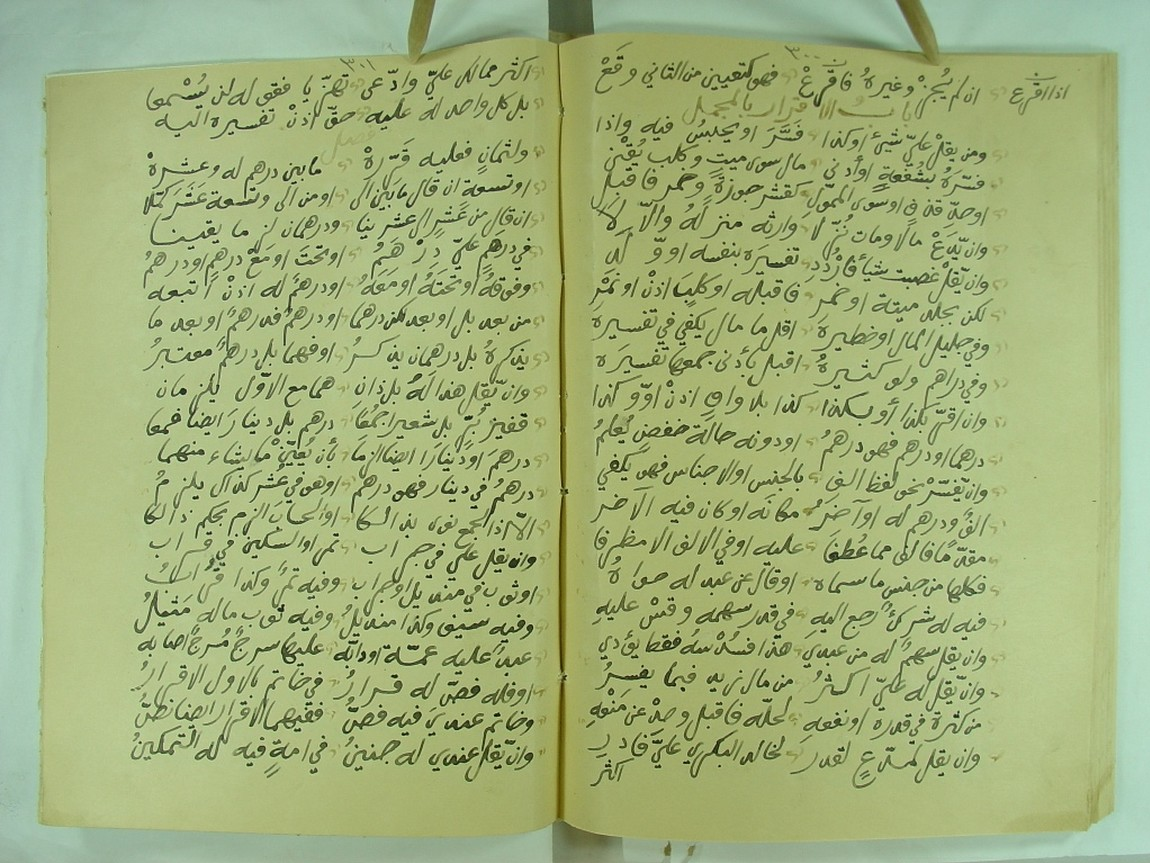 ٣٠٠
اذا اقرع ان لم يُجز وغيره فاقرع فهو كتعيين من الثاني وقع
باب الاقرار بالمجمل
ومن يقل عليّ شيئ أو كذا فسّر او يحبسُ فيه واذا
فسّره بشفعةٍ اوأدنى مال سوى ميتٍ وكلب يُقنى
اوحدّ قذفٍ اوسوى المموّل كقشر جوزة وخمر فاقبل
وان يدّع مالا ومات وارثه منزله والّا لا
وان يقل غصبت شيأ فاردد تفسيره بنفسه او
لكن بجلد ميتة او خمر فاقبله او كلب اذن او تمر
وفي جليل المال اوخطيره اقل ما مال يكفي في تفسيره
وفي دراهم ولو كثيره اقبل بأدنى جمعها تفسيره
وان اقرّ بكذا أو بكذا كذا بلا واو اذن أوّو كذا
درهما اودرهم فهو درهمُ اودونه حالة خفض يُعلمُ
وان يفسّر نحو لفظ الف بالجنس اوالاجناس فهو يكفي
الفٌ ودرهم له اوآخرُ مكانه اوكان فيه الآخر
مقدّما فالف مما عُطفا عليه اوفي الالف الا مظرفا
فكلها من جنس ما سماه اوقال عن عبد له
فيه له شركٌ رجع اليه في قدر سهمه وقس عليه
وان يقل سهمٌ له من عبدي هذا فسُدسهُ فقط يؤدي
وان يقل له عليّ اكثرُ من مال زيد فبما يفسرُ
من كثرة في قدره اونفعه لحلّه فاقبل وصدّ عن منعه
وان يقل لمدّعٍ لقدر لخالد البكري عليّ فادر
اكثر
٣٠١
اكثر ممالك عليّ وادّعى تهزّيا فقوله لن يُسمعا
بل كل واحد له عليه حقّ اذن تفسيره اليه
فصل
ما بين درهم له وعشره ولثمان فعليه قرّره
اوتسعة ان قال مابين الى اومن الى وتسعة عشر كملا
ان قال من عشر الى عشرينا ودرهمان لزما يقينا
في درهم عليّ درهمُ اوتحت اومع درهم اودرهمُ
وفوقه اوتحته اومعه اودرهم له اذن اتبعه
من بعد بل اوبعد لكن درهما اودرهم فدرهم اوبعد ما
يذكره بل درهمان يذكرُ اوفهما بل درهم معتبرُ
وان يقل هذا له بل ذان هما مع الاوّل يلزمان
قفيز بُرّ بل شعير اجمعا درهم بل دينار ايضا فمعا
درهم اودينارا ايضا الزما بأن يُعيّن ما يشاء منهما
درهمُ في دينار فهو درهم اوهو في عشر كذاك يلزمُ
الّا اذا الجمع نوى بذالكا اوالحساب الزم بحكم ذالكا
وان يقل عليّ في جراب تمر اوالسكين في قراب
اوثوب في منديل اوجراب وفيه تمرٌ وكذا قرابُ
وفيه سيف وكذا منديلُ وفيه ثوب ماله مثيلُ
عبدٌ عليه عمّة اودابّه عليها سرجٌ مُسرجٌ اصابه
اوفله فصّ له قرارُ في خاتم بالاول الاقرارُ
وخاتم عندي فيه فصّ ففيهما الاقرار ايضا نصّ
وان يقل عندي له جنينُ في امةٍ فيه له التمكينُ